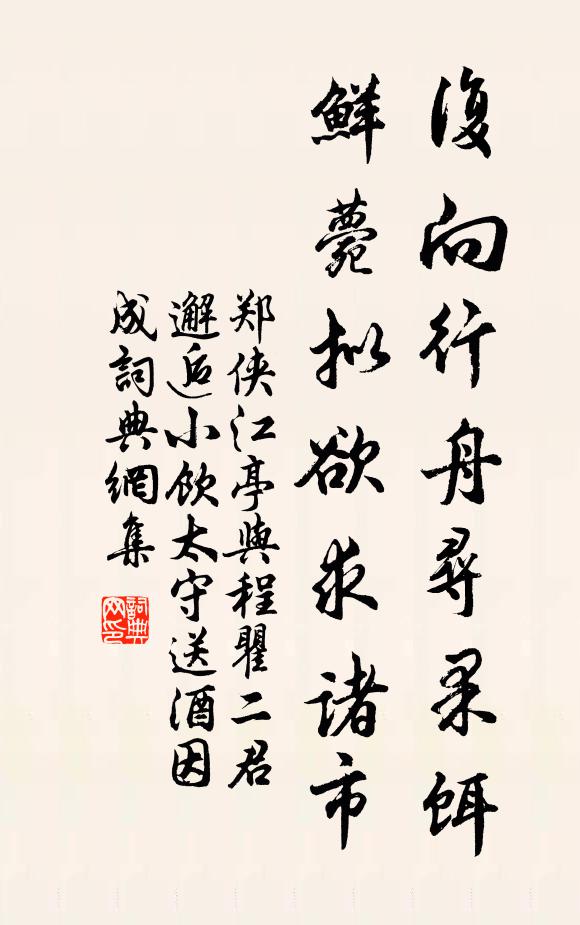 復向行舟尋果餌
鮮薧拟欲求諸市
郑侠江亭與程瞿二君
邂逅小飲太守送酒因
成詞典網集
詞典网印